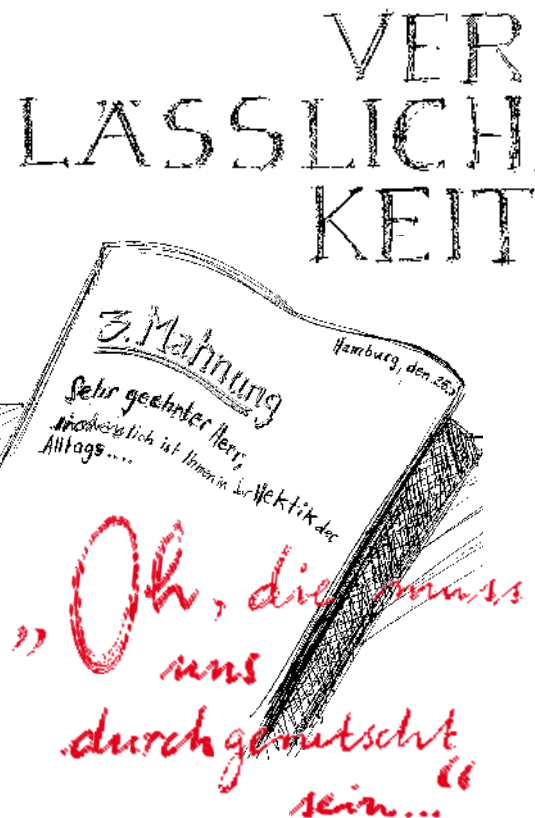 VER
LÄSSLICH
KEIT
3. Mahnung
Hamburg, den 26.
Sehr geehrter Herr,
ist Ihnen in der Hektik des
Alltags....
„Oh, die muss
uns
durchgerutscht
sein..."